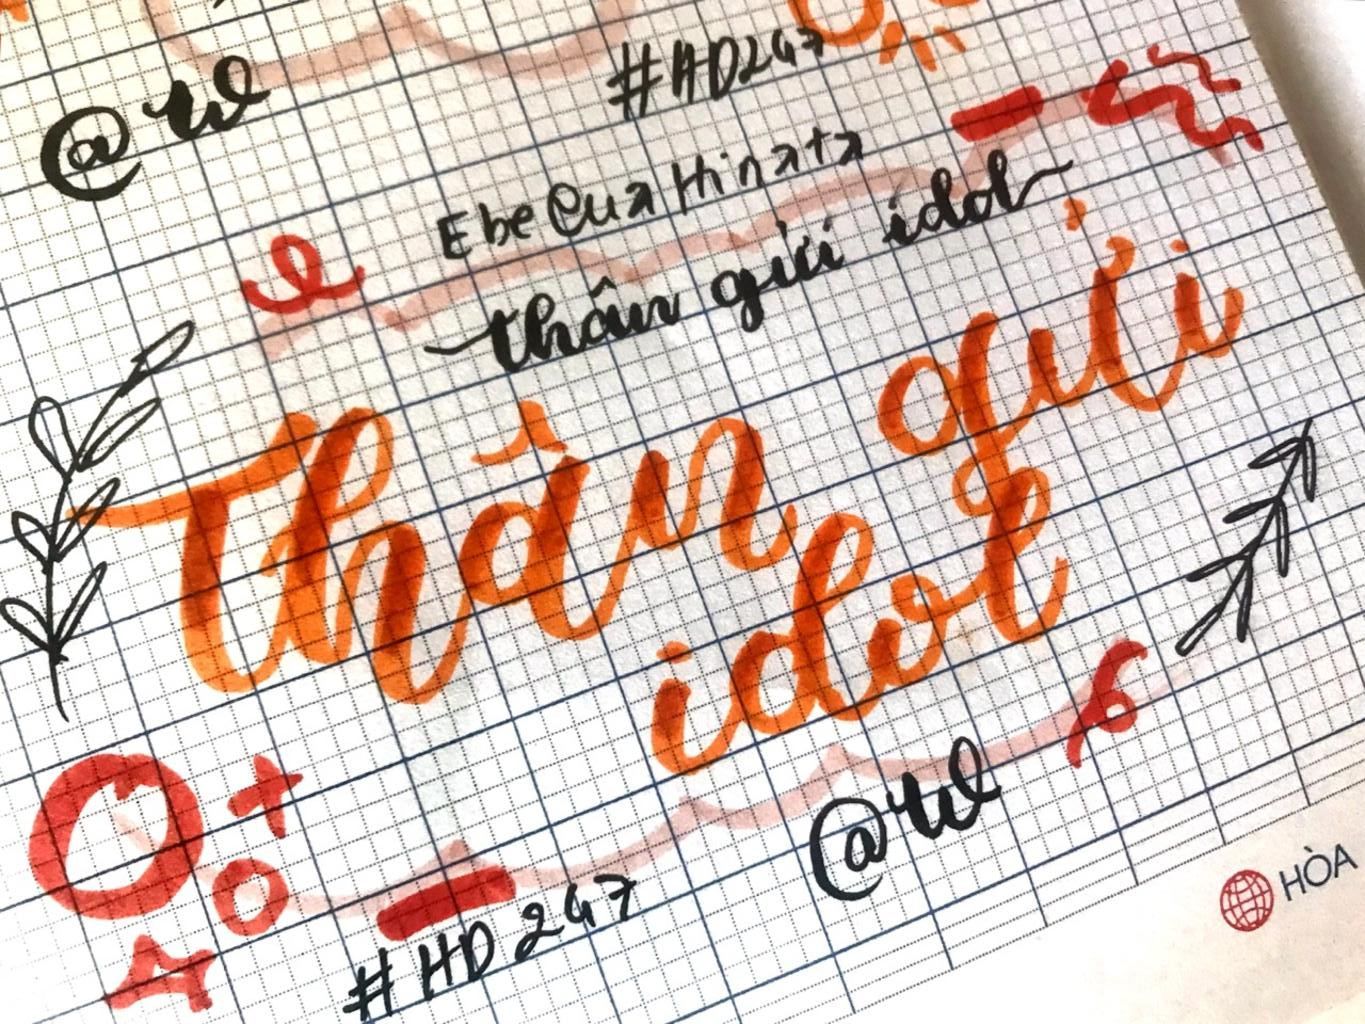 @w
#HD247
Ebe Cua Hinata
thân gửi idol
Thân gửi
idol
@w
#HD247
HÒA